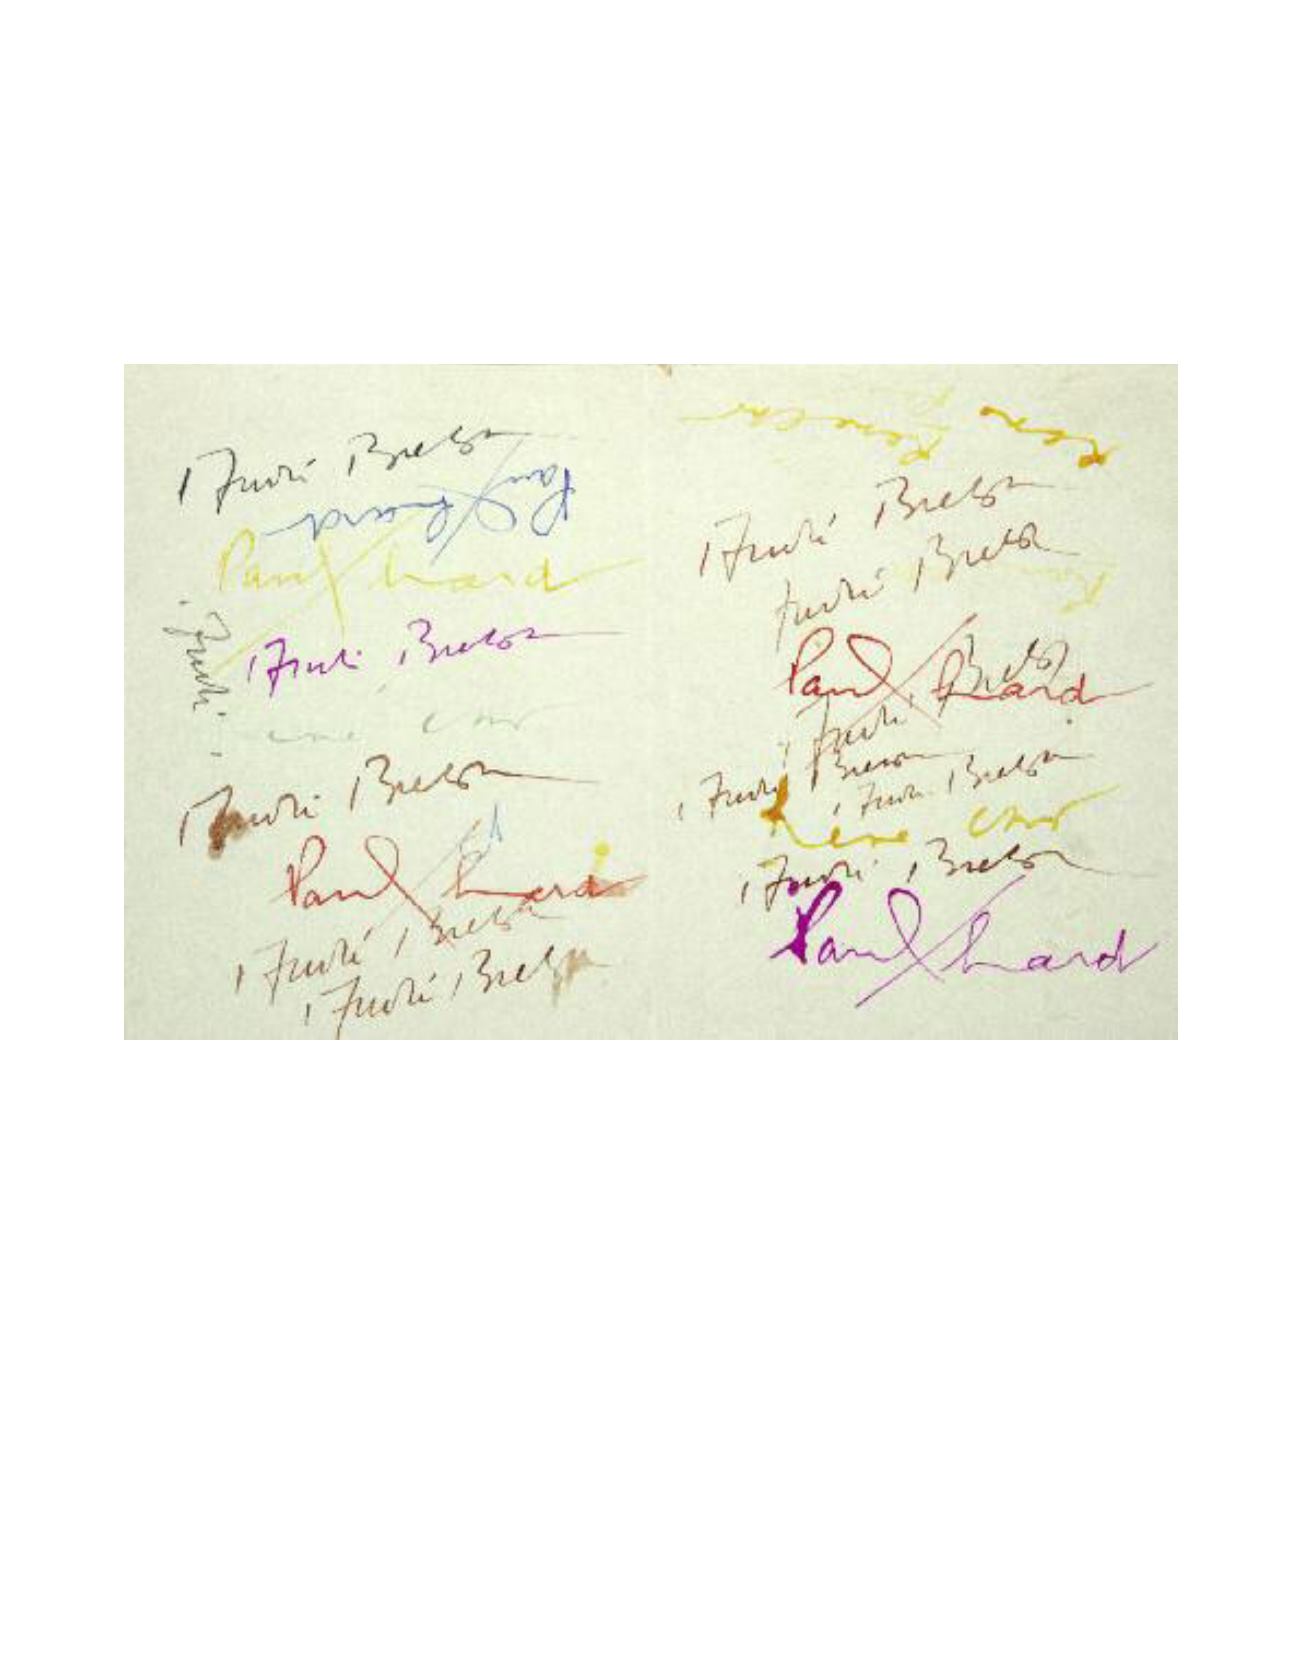 André Breton
Paul Eluard
Paul Eluard
André
André Breton
rené char
André Breton
Paul Eluard
André Breton
André Breton
René Char
René
André Breton
André Breton
Paul Eluard
André Breton
André Breton
André Breton
René Char
André Breton
Paul Eluard